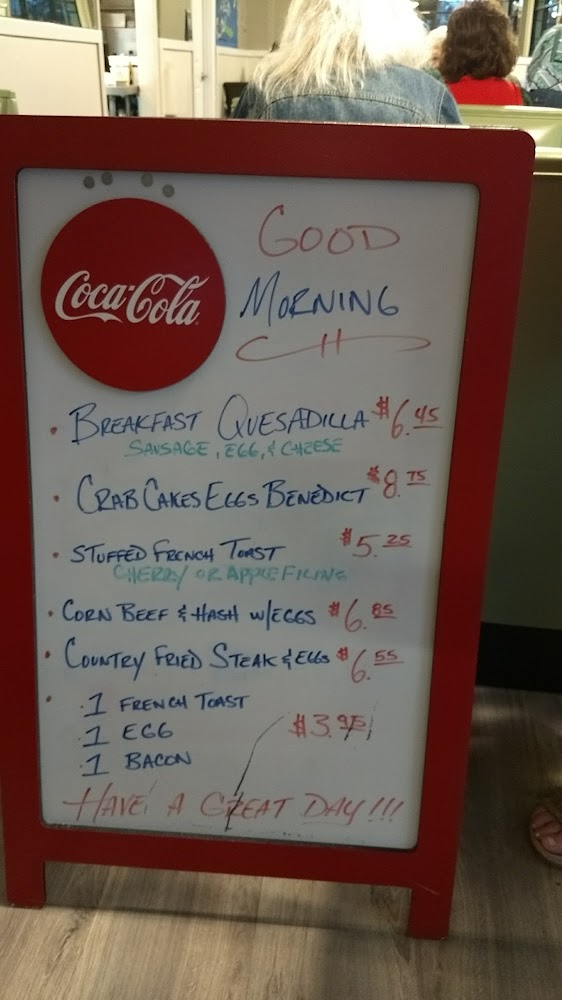 Coca-Cola
GOOD
MORNING
• BREAKFAST QUESADILLA $6.45
SAUSAGE, EGG, & CHEESE
• CRAB CAKES EGGS BENEDICT $8.75
• STUFFED FRENCH TOAST $5.25
CHERRY OR APPLE FILING
• CORN BEEF & HASH W/EGGS $6.85
• COUNTRY FRIED STEAK & EGGS $6.55
• 1 FRENCH TOAST
1 EGG $3.95
1 BACON
HAVE A GREAT DAY!!!